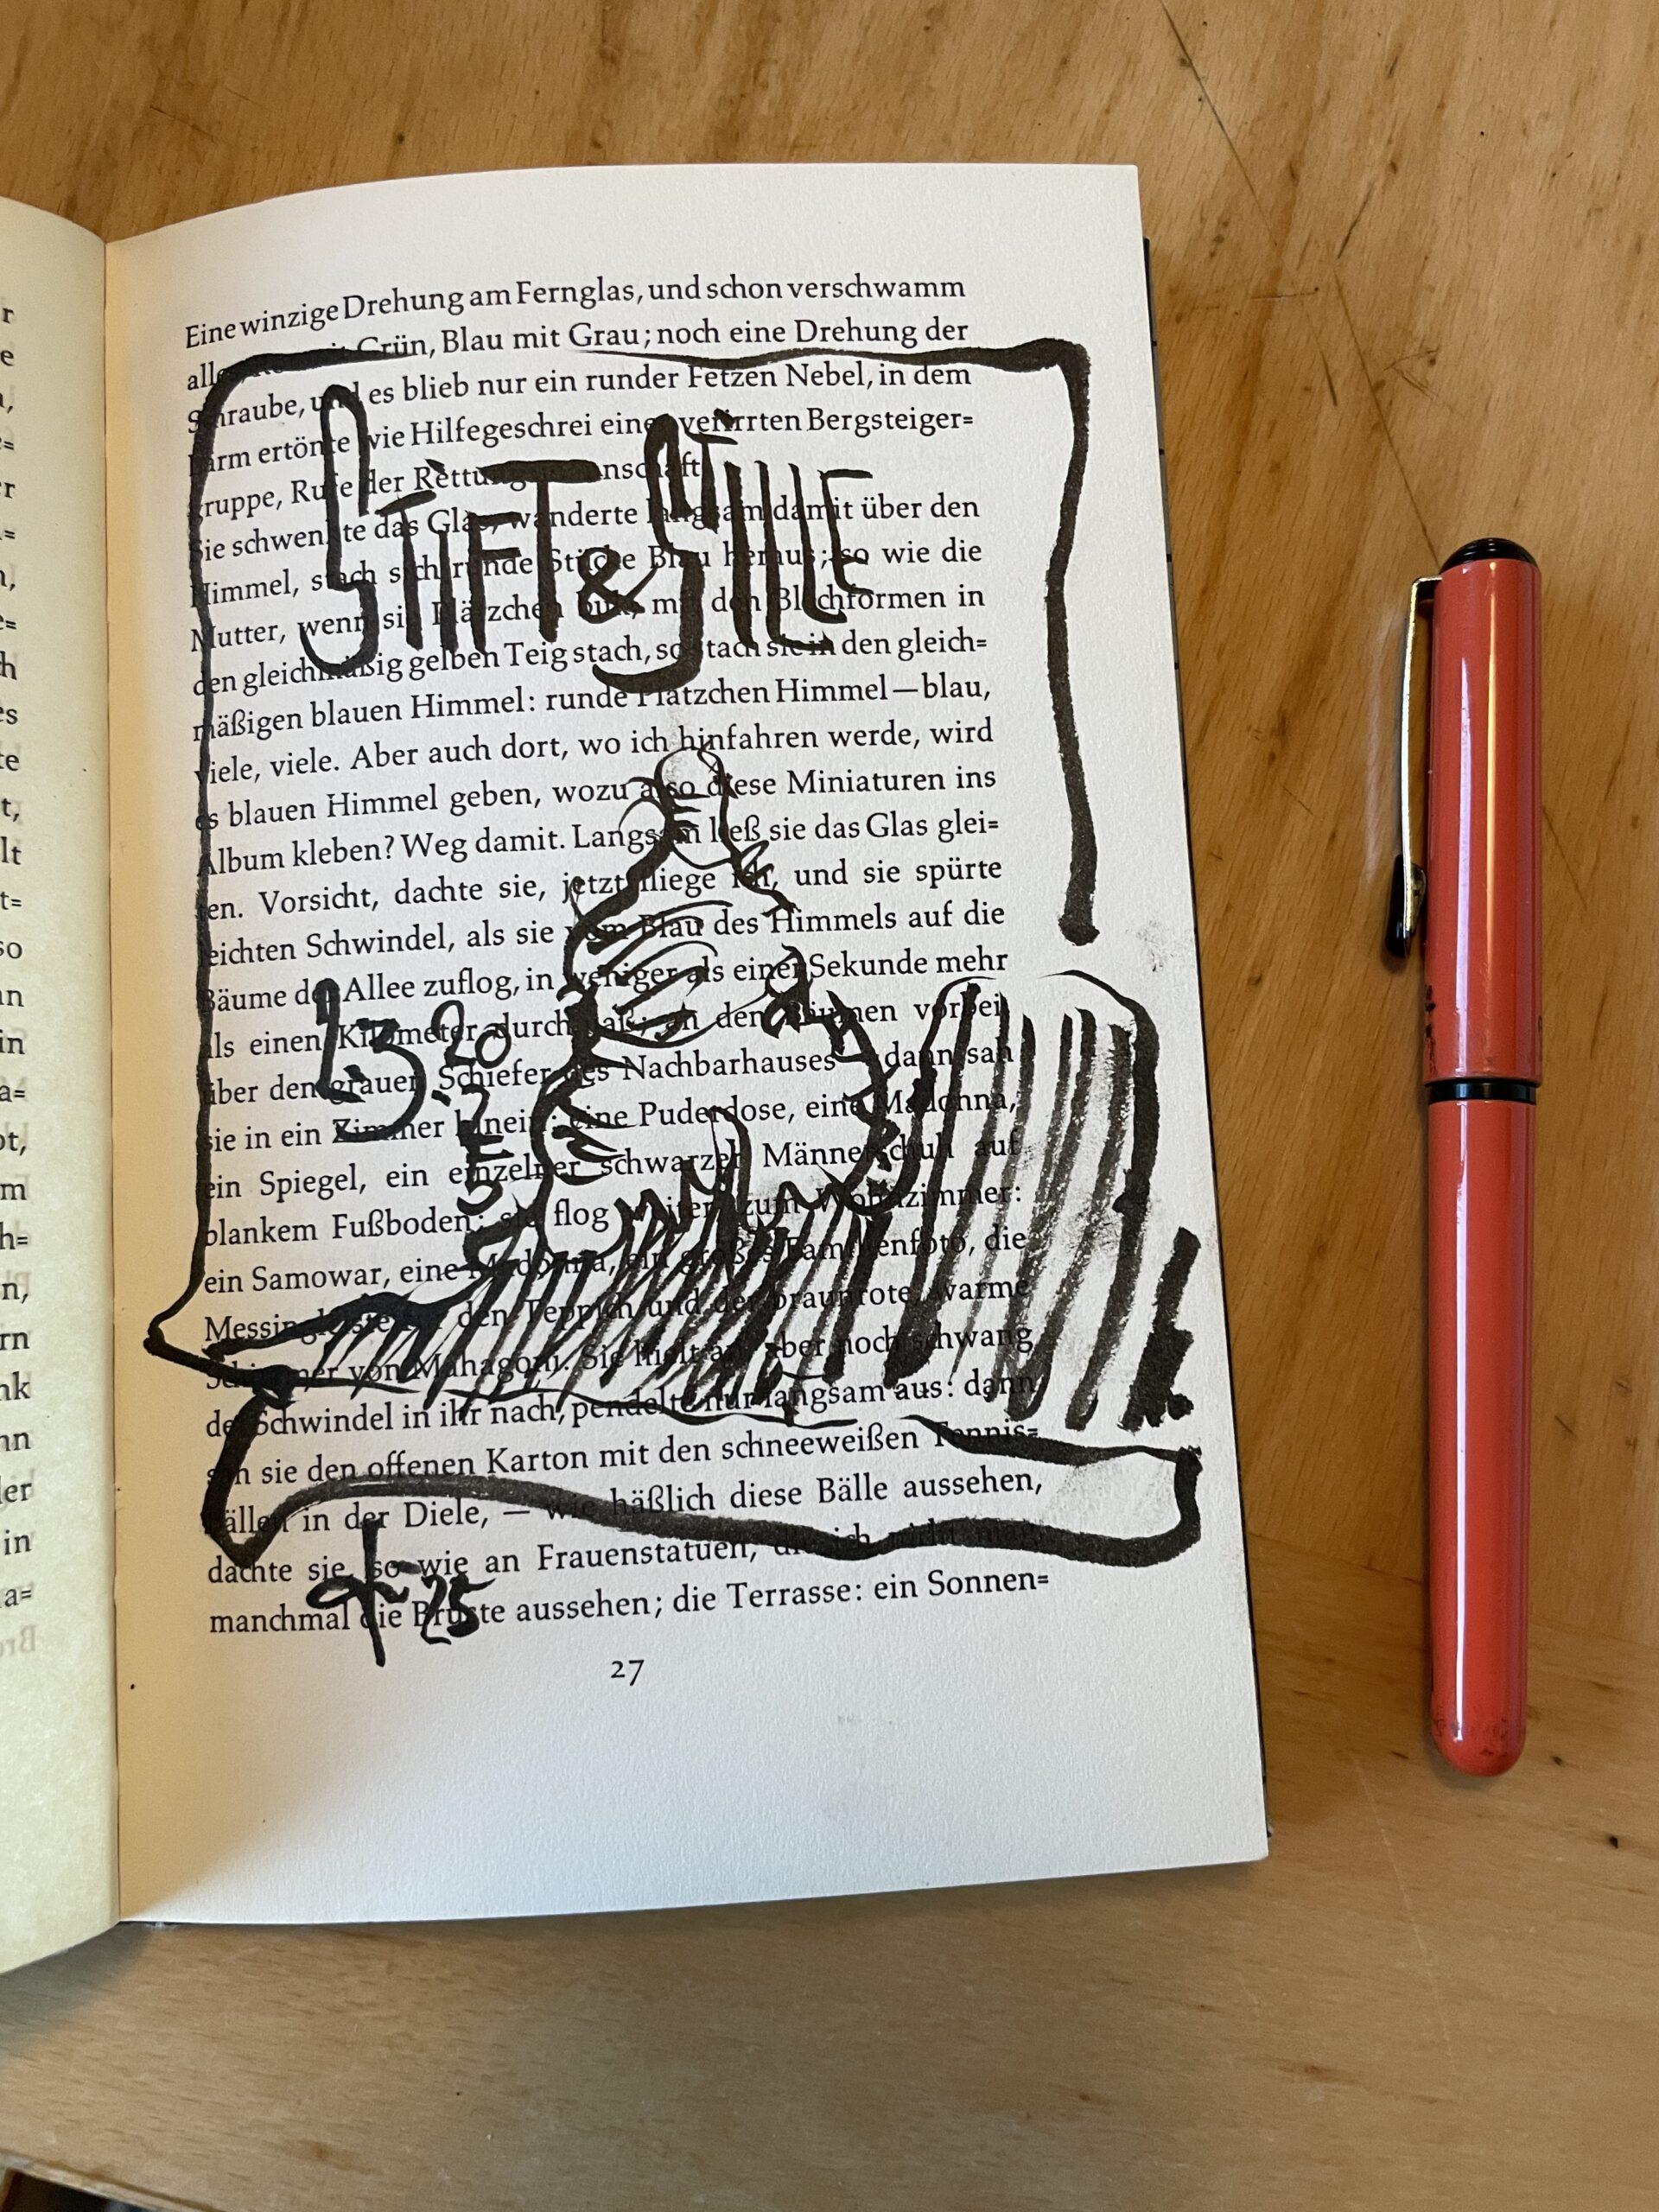 Eine winzige Drehung am Fernglas, und schon verschwamm
Grün, Blau mit Grau; noch eine Drehung der
Schraube, und es blieb nur ein runder Fetzen Nebel, in dem
Lärm ertönte wie Hilfegeschrei einer verirrten Bergsteiger=
gruppe, Rufe der Rettungsmannschaft.
Sie schwenkte das Glas, wanderte langsam damit über den
Himmel, stach sich runde Stücke Blau heraus; so wie die
Mutter, wenn sie Plätzchen buk, mit den Blechformen in
den gleichmäßig gelben Teig stach, so stach sie in den gleich=
mäßigen blauen Himmel: runde Plätzchen Himmel—blau,
viele, viele. Aber auch dort, wo ich hinfahren werde, wird
es blauen Himmel geben, wozu also diese Miniaturen ins
Album kleben? Weg damit. Langsam ließ sie das Glas glei=
ten. Vorsicht, dachte sie, jetzt fliege ich, und sie spürte
leichten Schwindel, als sie vom Blau des Himmels auf die
Bäume der Allee zuflog, in weniger als einer Sekunde mehr
als einen Kilometer durchmaß; an den Bäumen vorbei
über den grauen Schiefer des Nachbarhauses — dann sah
sie in ein Zimmer hinein: eine Puderdose, eine Madonna,
ein Spiegel, ein einzelner schwarzer Männerschuh auf
blankem Fußboden; sie flog weiter zum Wohnzimmer:
ein Samowar, eine Madonna, ein großes Familienfoto, die
Messingleiste für den Teppich und der braunrote, warme
Schimmer von Mahagoni. Sie hielt an, aber noch schwang
der Schwindel in ihr nach, pendelte nur langsam aus: dann
sah sie den offenen Karton mit den schneeweißen Tennis=
bällen in der Diele, — wie häßlich diese Bälle aussehen,
dachte sie, so wie an Frauenstatuen, die ich nicht mag,
manchmal die Brüste aussehen; die Terrasse: ein Sonnen=
27
STIFT & STILLE
23.20
25